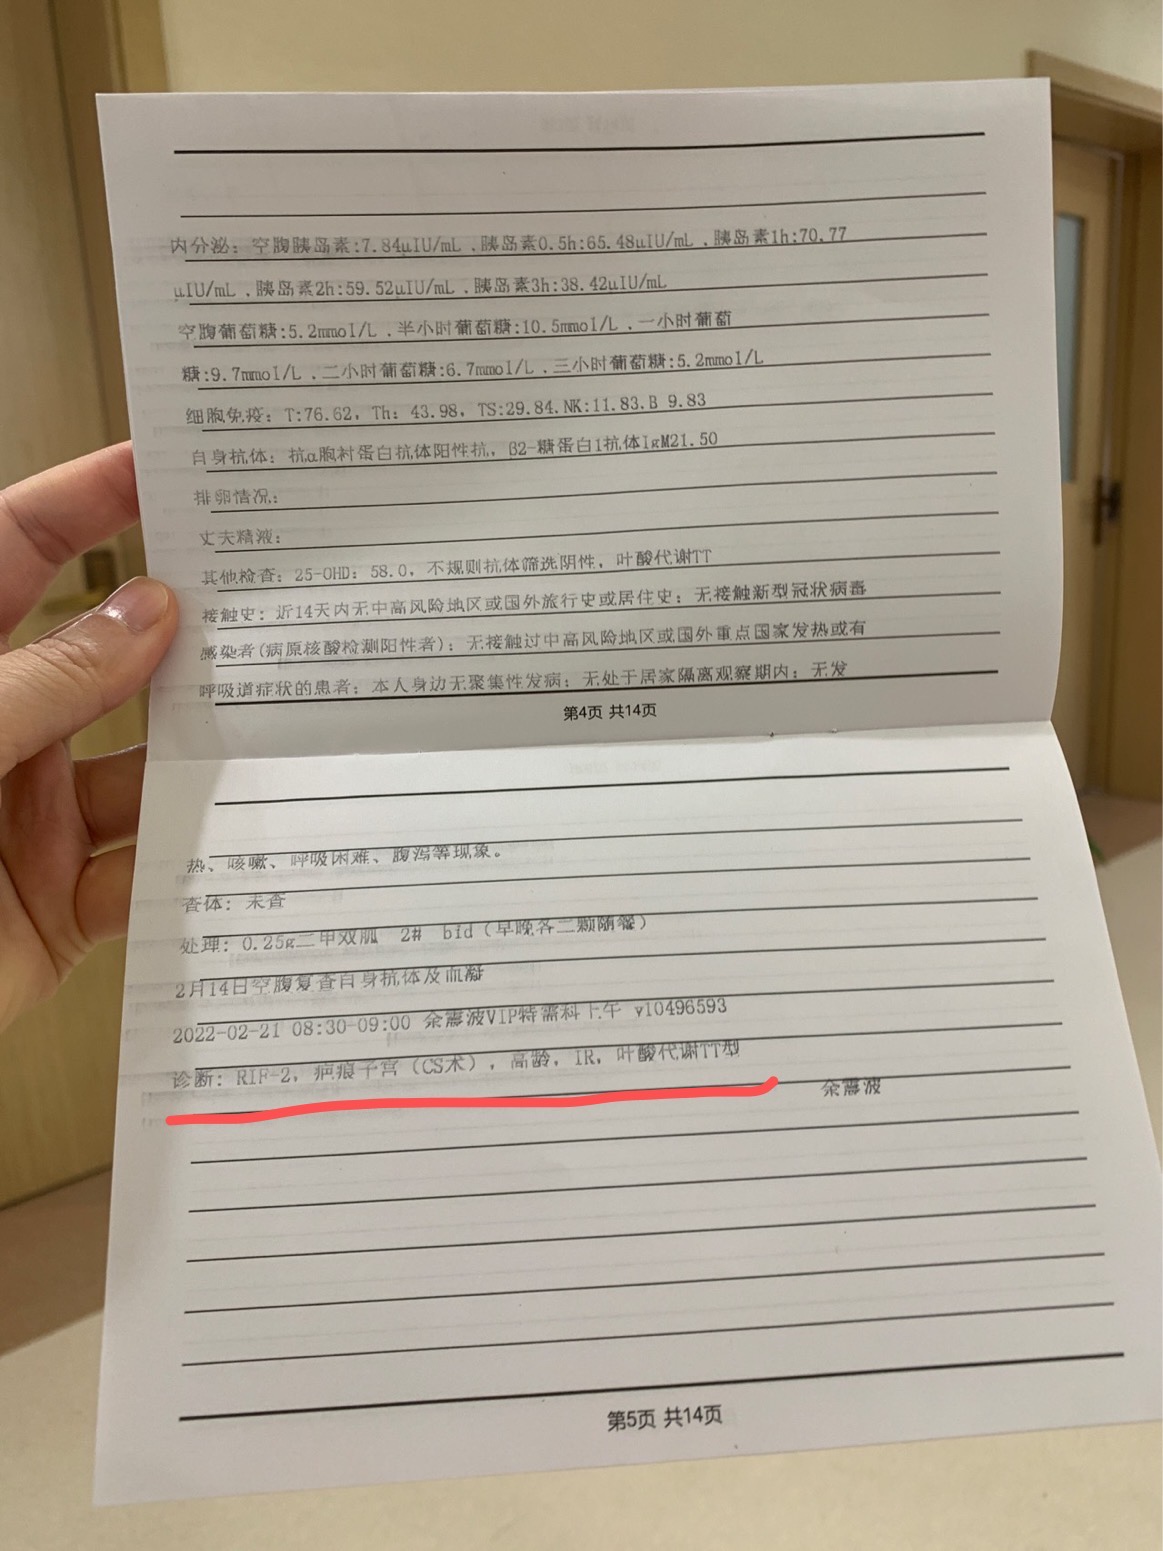 内分泌：空腹胰岛素:7.84μIU/mL ,胰岛素0.5h:65.48μIU/mL ,胰岛素1h:70.77
μIU/mL ,胰岛素2h:59.52μIU/mL ,胰岛素3h:38.42μIU/mL
空腹葡萄糖:5.2mmol/L ,半小时葡萄糖:10.5mmol/L ,一小时葡萄
糖:9.7mmol/L ,二小时葡萄糖:6.7mmol/L ,三小时葡萄糖:5.2mmol/L
细胞免疫：T:76.62, Th：43.98, TS:29.84,NK:11.83.B 9.83
自身抗体：抗α胞衬蛋白抗体阳性抗，β2-糖蛋白1抗体IgM21.50
排卵情况：
丈夫精液：
其他检查：25-OHD：58.0，不规则抗体筛选阴性，叶酸代谢TT
接触史：近14天内无中高风险地区或国外旅行史或居住史；无接触新型冠状病毒
感染者(病原核酸检测阳性者)；无接触过中高风险地区或国外重点国家发热或有
呼吸道症状的患者；本人身边无聚集性发病；无处于居家隔离观察期内；无发
第4页 共14页
热、咳嗽、呼吸困难、腹泻等现象。
查体：未查
处理：0.25g二甲双胍 2# bid（早晚各二颗随餐）
2月14日空腹复查自身抗体及血凝
2022-02-21 08:30-09:00 余震波VIP特需科上午 v10496593
诊断：RIF-2，疤痕子宫（CS术），高龄，IR，叶酸代谢TT型
余震波
第5页 共14页